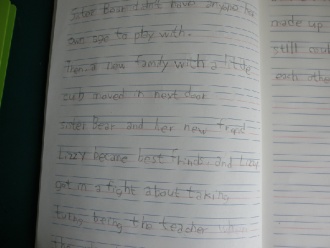 Sister Bear didn't have anyone her
own age to play with.
Then a new family with a little
cub moved in next door
Sister Bear and her new frend
Lizzy became best friends. and Lizzy
got in a fight about taking
turns being the teacher
made up
still
each othe